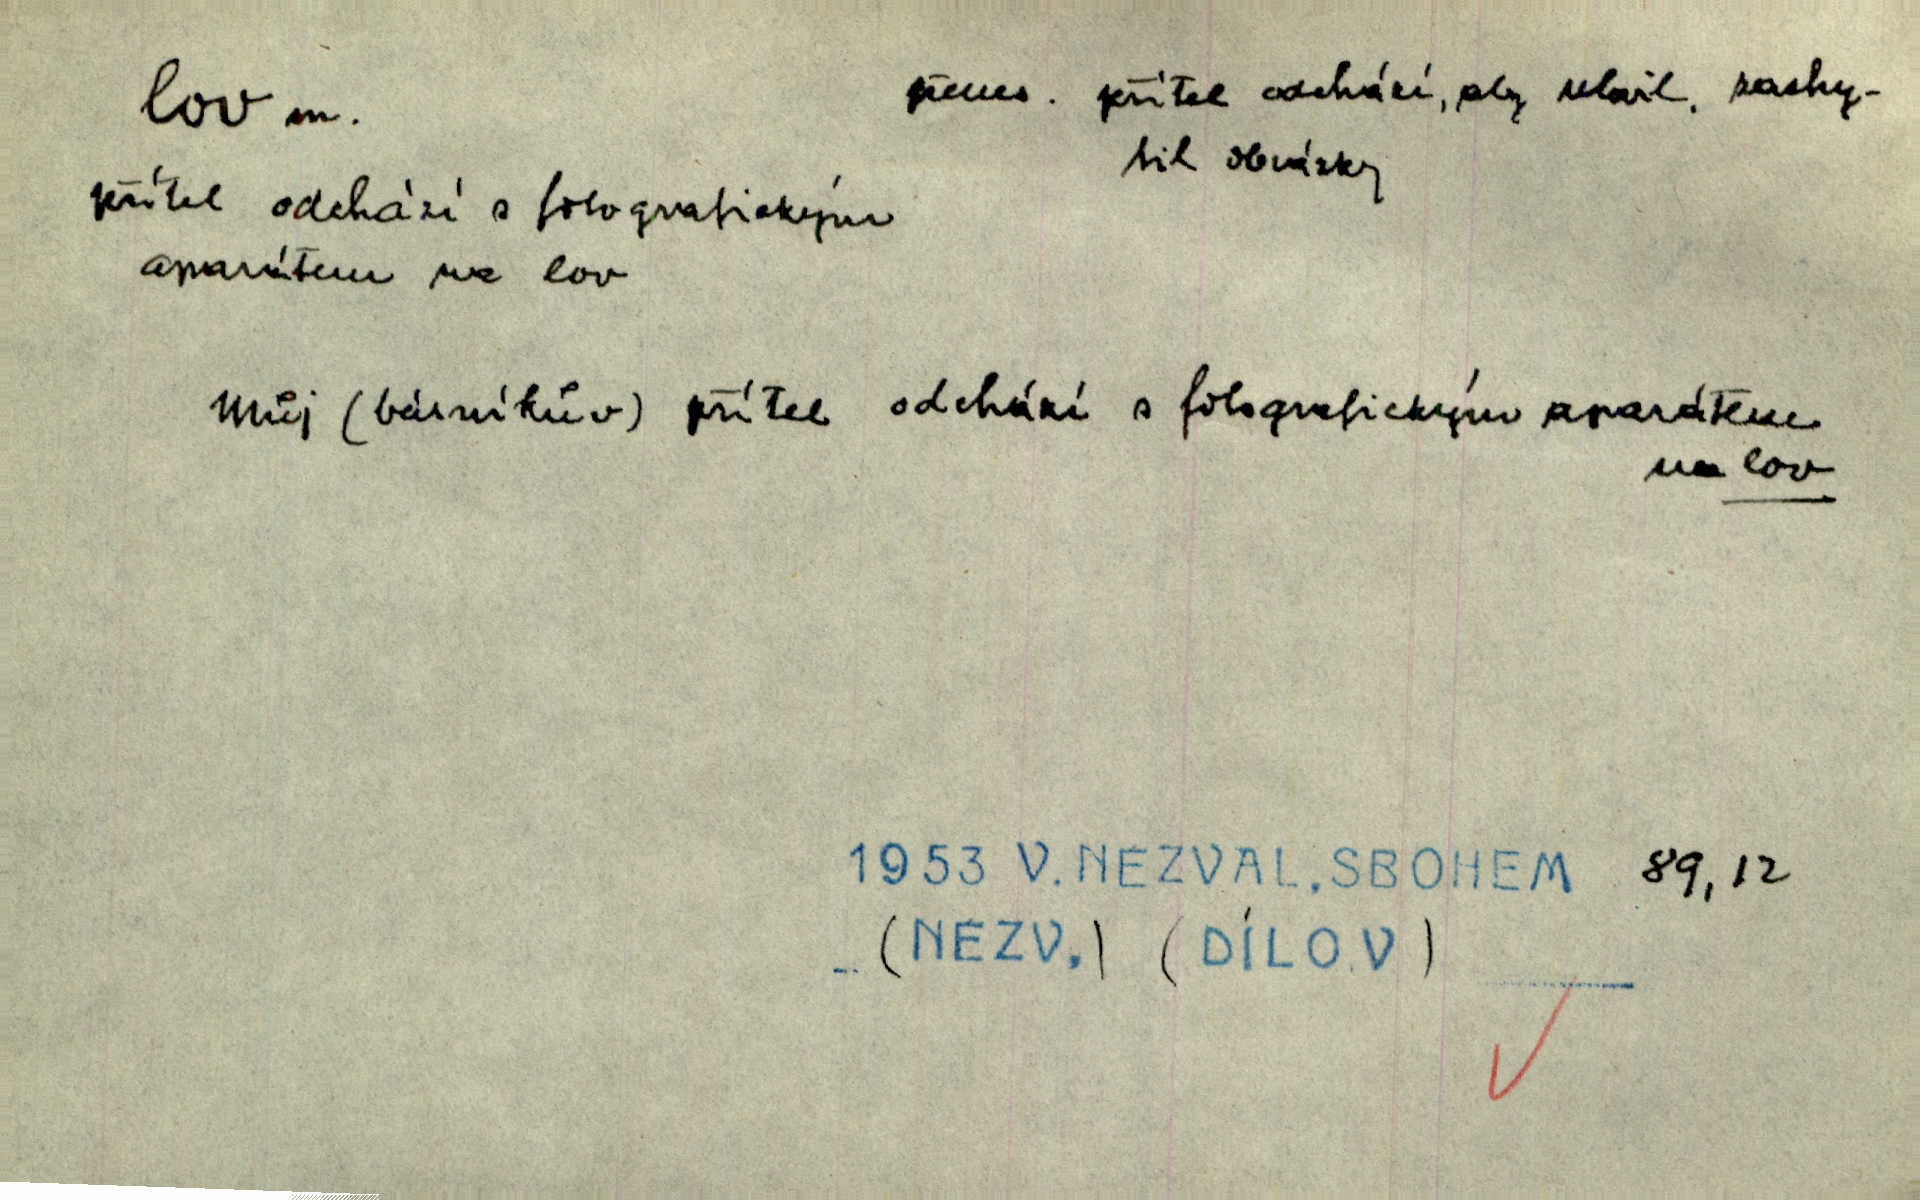 lov m.
přítel odchází s fotografickým
aparátem na lov
přenes. přítel odchází, aby ulovil, zachy-
til obrázky
Můj (básníkův) přítel odchází s fotografickým aparátem
na lov
1953 V. NEZVAL, SBOHEM 89,12
(NEZV.) (DÍLO V)